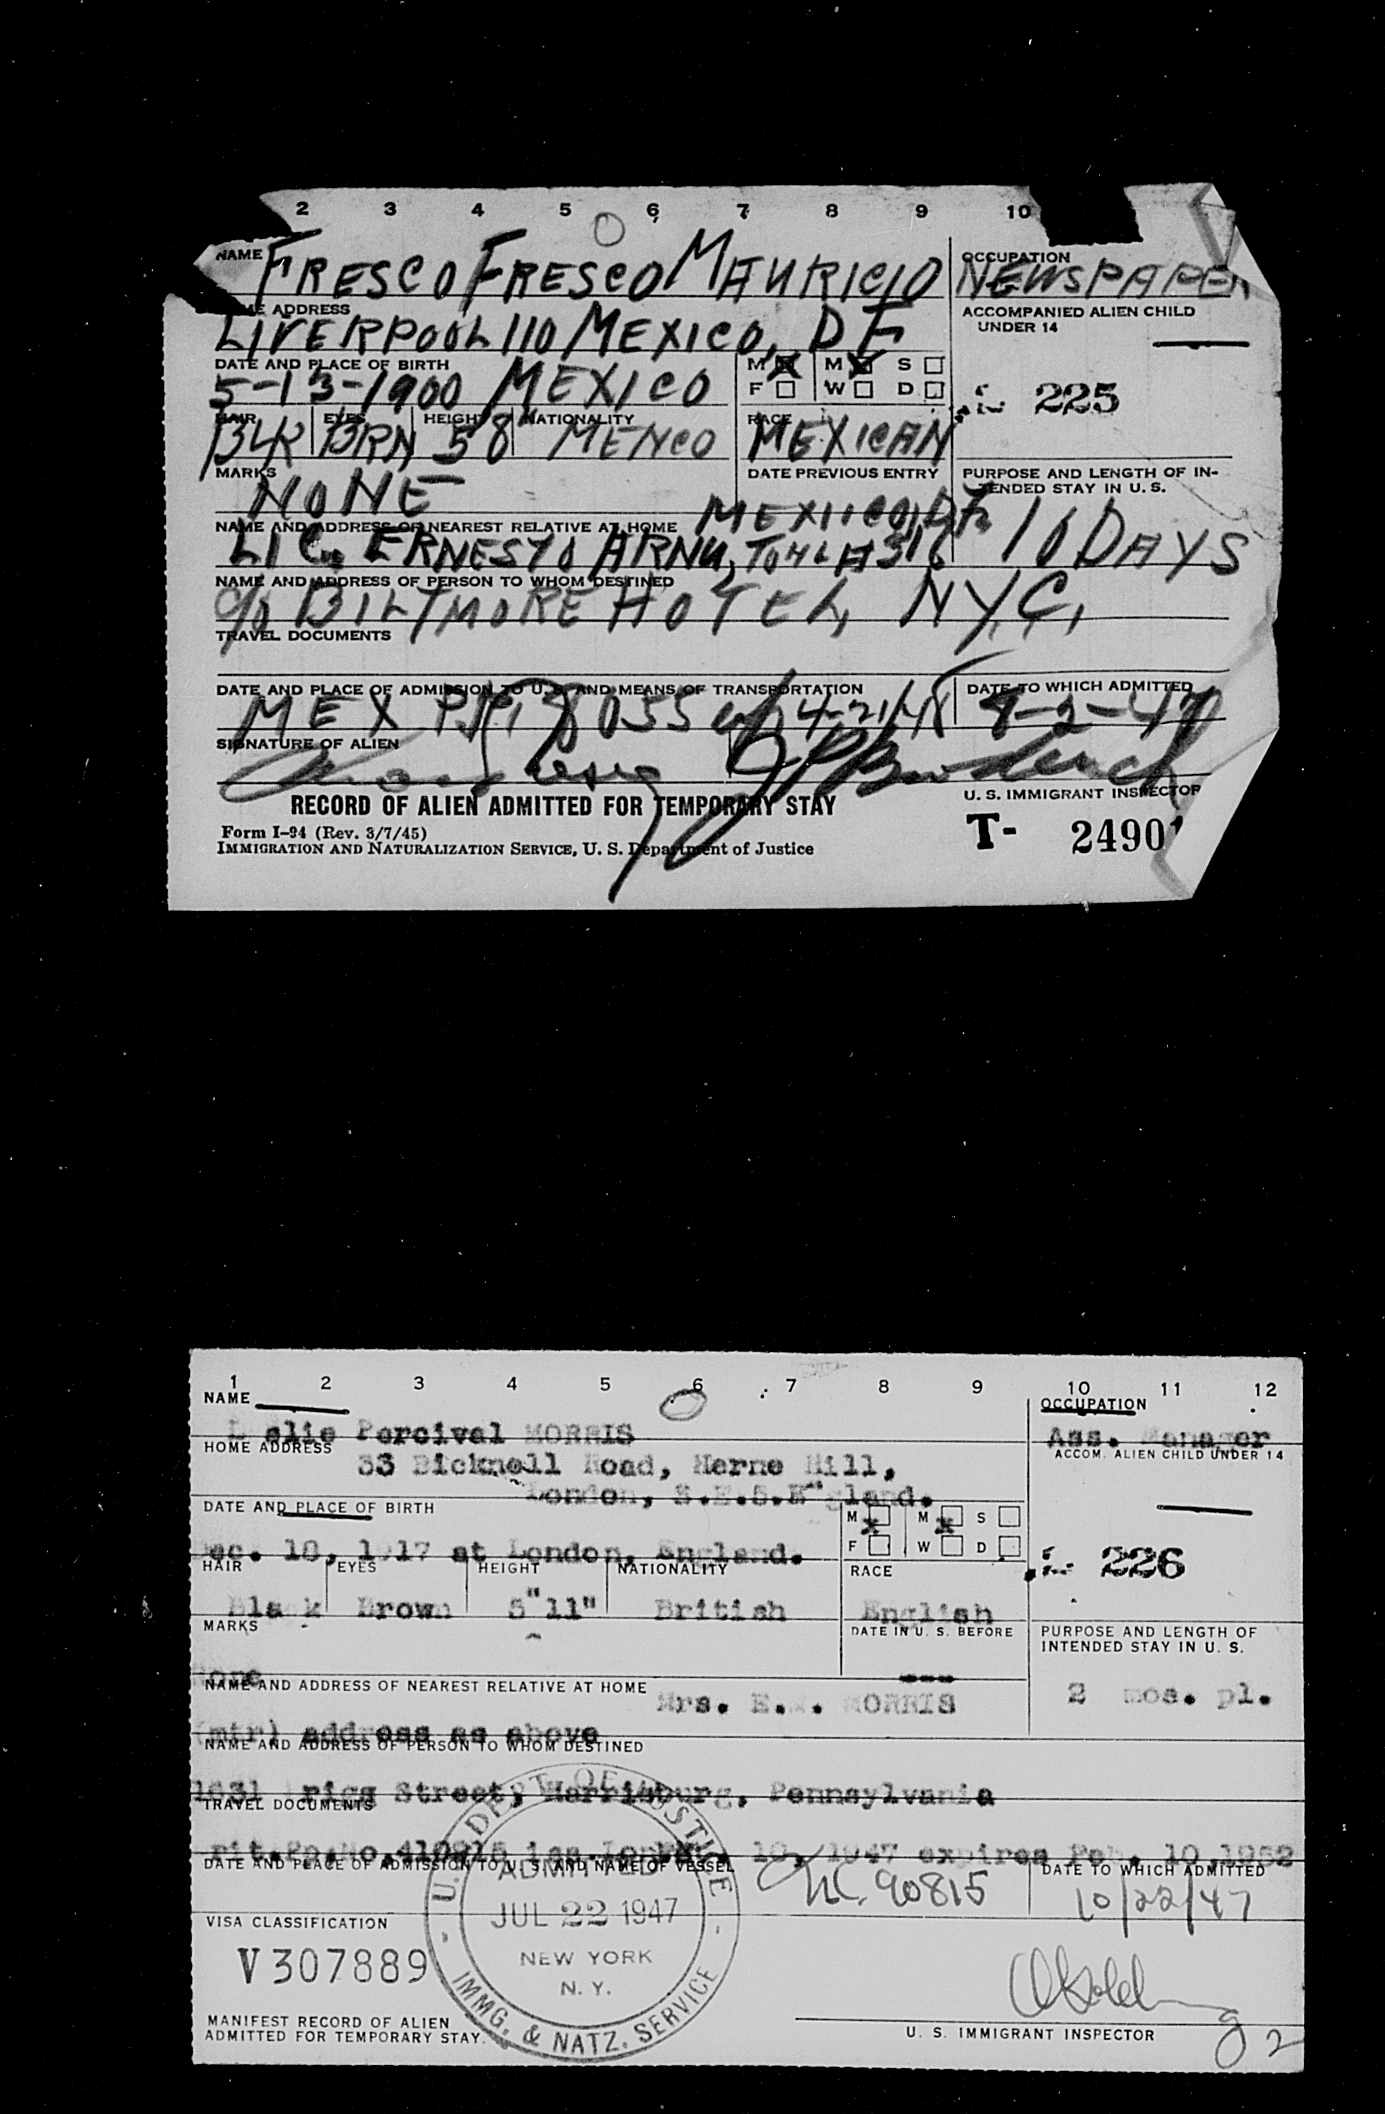 2 3 4 5 6 7 8 9 10
NAME FRESCO FRESCO MAURICIO
OCCUPATION NEWSPAPER
ADDRESS
LIVERPOOL 110 MEXICO, D F
ACCOMPANIED ALIEN CHILD
UNDER 14
DATE AND PLACE OF BIRTH
5-13-1900 MEXICO
M F M S W D
225
HAIR EYES HEIGHT NATIONALITY RACE
BLK BRN 58 MEXICO MEXICAN
MARKS
NONE
DATE PREVIOUS ENTRY
PURPOSE AND LENGTH OF IN-
TENDED STAY IN U. S.
10 DAYS
NAME AND ADDRESS OF NEAREST RELATIVE AT HOME MEXICO, D F
LIC. ERNESTO ARNU,
NAME AND ADDRESS OF PERSON TO WHOM DESTINED
c/o BILTMORE HOTEL, N.Y.C.,
TRAVEL DOCUMENTS
DATE AND PLACE OF ADMISSION TO U. S. AND MEANS OF TRANSPORTATION
DATE TO WHICH ADMITTED
MEX 4-21-48
SIGNATURE OF ALIEN
RECORD OF ALIEN ADMITTED FOR TEMPORARY STAY
U. S. IMMIGRANT INSPECTOR
Form I-94 (Rev. 3/7/45)
IMMIGRATION AND NATURALIZATION SERVICE, U. S. Department of Justice
T- 2490
1 2 3 4 5 6 7 8 9 10 11 12
NAME
OCCUPATION
Leslie Percival MORRIS
Ass. Manager
HOME ADDRESS
ACCOM. ALIEN CHILD UNDER 14
33 Bicknell Road, Herne Hill,
London, S.E.5.England.
DATE AND PLACE OF BIRTH
M F M S W D
Dec. 18, 1917 at London, England.
226
HAIR EYES HEIGHT NATIONALITY RACE
Black Brown 5"11" British English
MARKS
DATE IN U. S. BEFORE
PURPOSE AND LENGTH OF
INTENDED STAY IN U. S.
None
---
2 mos. pl.
NAME AND ADDRESS OF NEAREST RELATIVE AT HOME
Mrs. E. MORRIS
(mtr) address as above
NAME AND ADDRESS OF PERSON TO WHOM DESTINED
1631 Street, Harrisburg, Pennsylvania
TRAVEL DOCUMENTS
Brit.Pp.No.410915 iss. 10, 1947 expires Feb. 10,1952
DATE AND PLACE OF ADMISSION TO U. S. AND NAME OF VESSEL
DATE TO WHICH ADMITTED
NC. 90815
10/22/47
U. S. DEPT OF JUSTICE
ADMITTED
JUL 22 1947
NEW YORK
N. Y.
IMMG. & NATZ. SERVICE
VISA CLASSIFICATION
V307889
MANIFEST RECORD OF ALIEN
ADMITTED FOR TEMPORARY STAY.
U. S. IMMIGRANT INSPECTOR